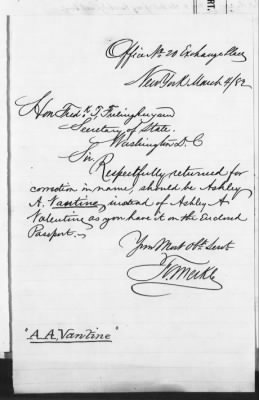 Office No 20 Exchange Place
New York March 4/82
Hon Fred.k T. Frelinghuysen
Secretary of State.
Washington D.C
Sir,
Respectfully returned for
correction in name, should be Ashley
A. Vantine, instead of Ashley A
Valentine as you have it on the Enclosed
Passport.
Your Most Obt Servt
"A.A. Vantine"
RT.